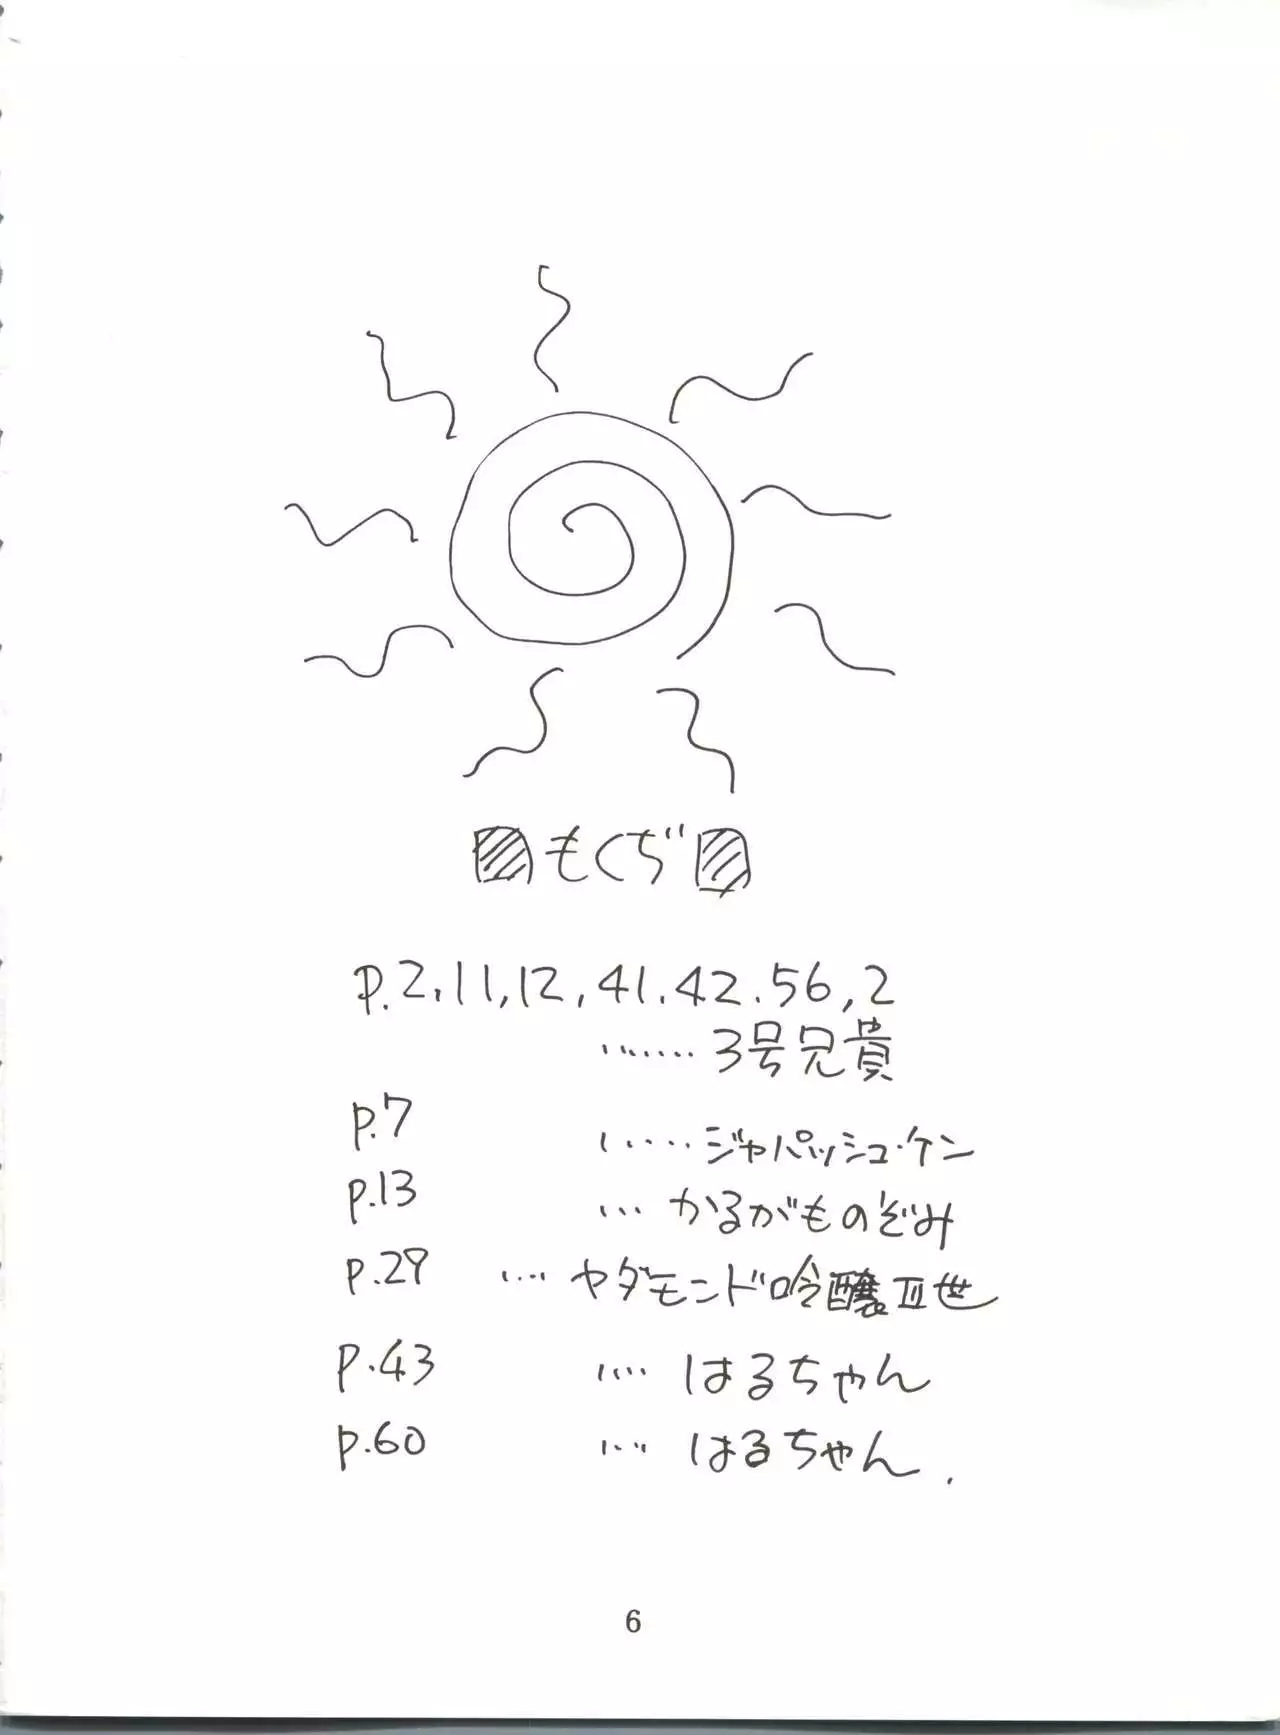 ▨もくぢ▨
p.2,11,12,41.42.56,2
‥‥‥‥3号兄貴
p.7 ‥‥‥ジャパッシュ・ケン
p.13 ‥‥かるがものぞみ
p.29 ‥‥ヤダモンド吟醸Ⅱ世
p.43 ‥‥はるちゃん
p.60 ‥‥はるちゃん.
6